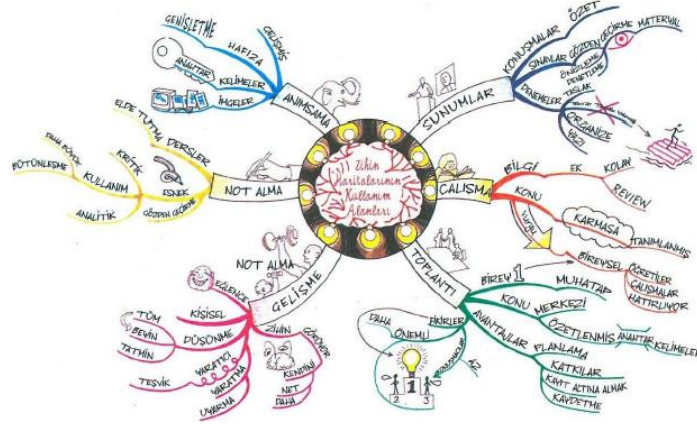 Zihin
Haritalarının
Kullanım
Alanları
ANIMSAMA
GELİŞMİŞ
HAFIZA
GENİŞLETME
ANAHTAR
KELİMELER
İMGELER
SUNUMLAR
KONUŞMALAR
ÖZET
SINAVLAR
GÖZDEN
GEÇİRME
MATERYAL
ÖNİZLEME
DENETLEME
DENEMELER
TASLAK
ORGANİZE
YAZI
ÇALIŞMA
BİLGİ
EK
KOLAY
REVIEW
KONU
KARMAŞA
TANIMLANMIŞ
VURGU
BİREYSEL
ÖĞRETİLER
ÇALIŞMALAR
HATIRLIYOR
TOPLANTI
BİREY 1
MUHATAP
KONU
MERKEZİ
ÖZETLENMİŞ
ANAHTAR
KELİMELER
AVANTAJLAR
PLANLAMA
KATKILAR
KAYIT ALTINA ALMAK
KAYDETME
FİKİRLER
DAHA
ÖNEMLİ
AZ
1
2
3
GELİŞME
NOT ALMA
EĞLENCE
KİŞİSEL
DÜŞÜNME
TÜM
BEYİN
TATMİN
YARATICI
TEŞVİK
YARATMA
UYARMA
ZİHİN
GÖRÜYOR
KENDİNİ
NET
DAHA
NOT ALMA
DERSLER
ELDE TUTMA
KULLANIM
KRİTİK
DAHA BÜYÜK
BÜTÜNLEŞME
ANALİTİK
ESNEK
GÖZDEN GEÇİRME